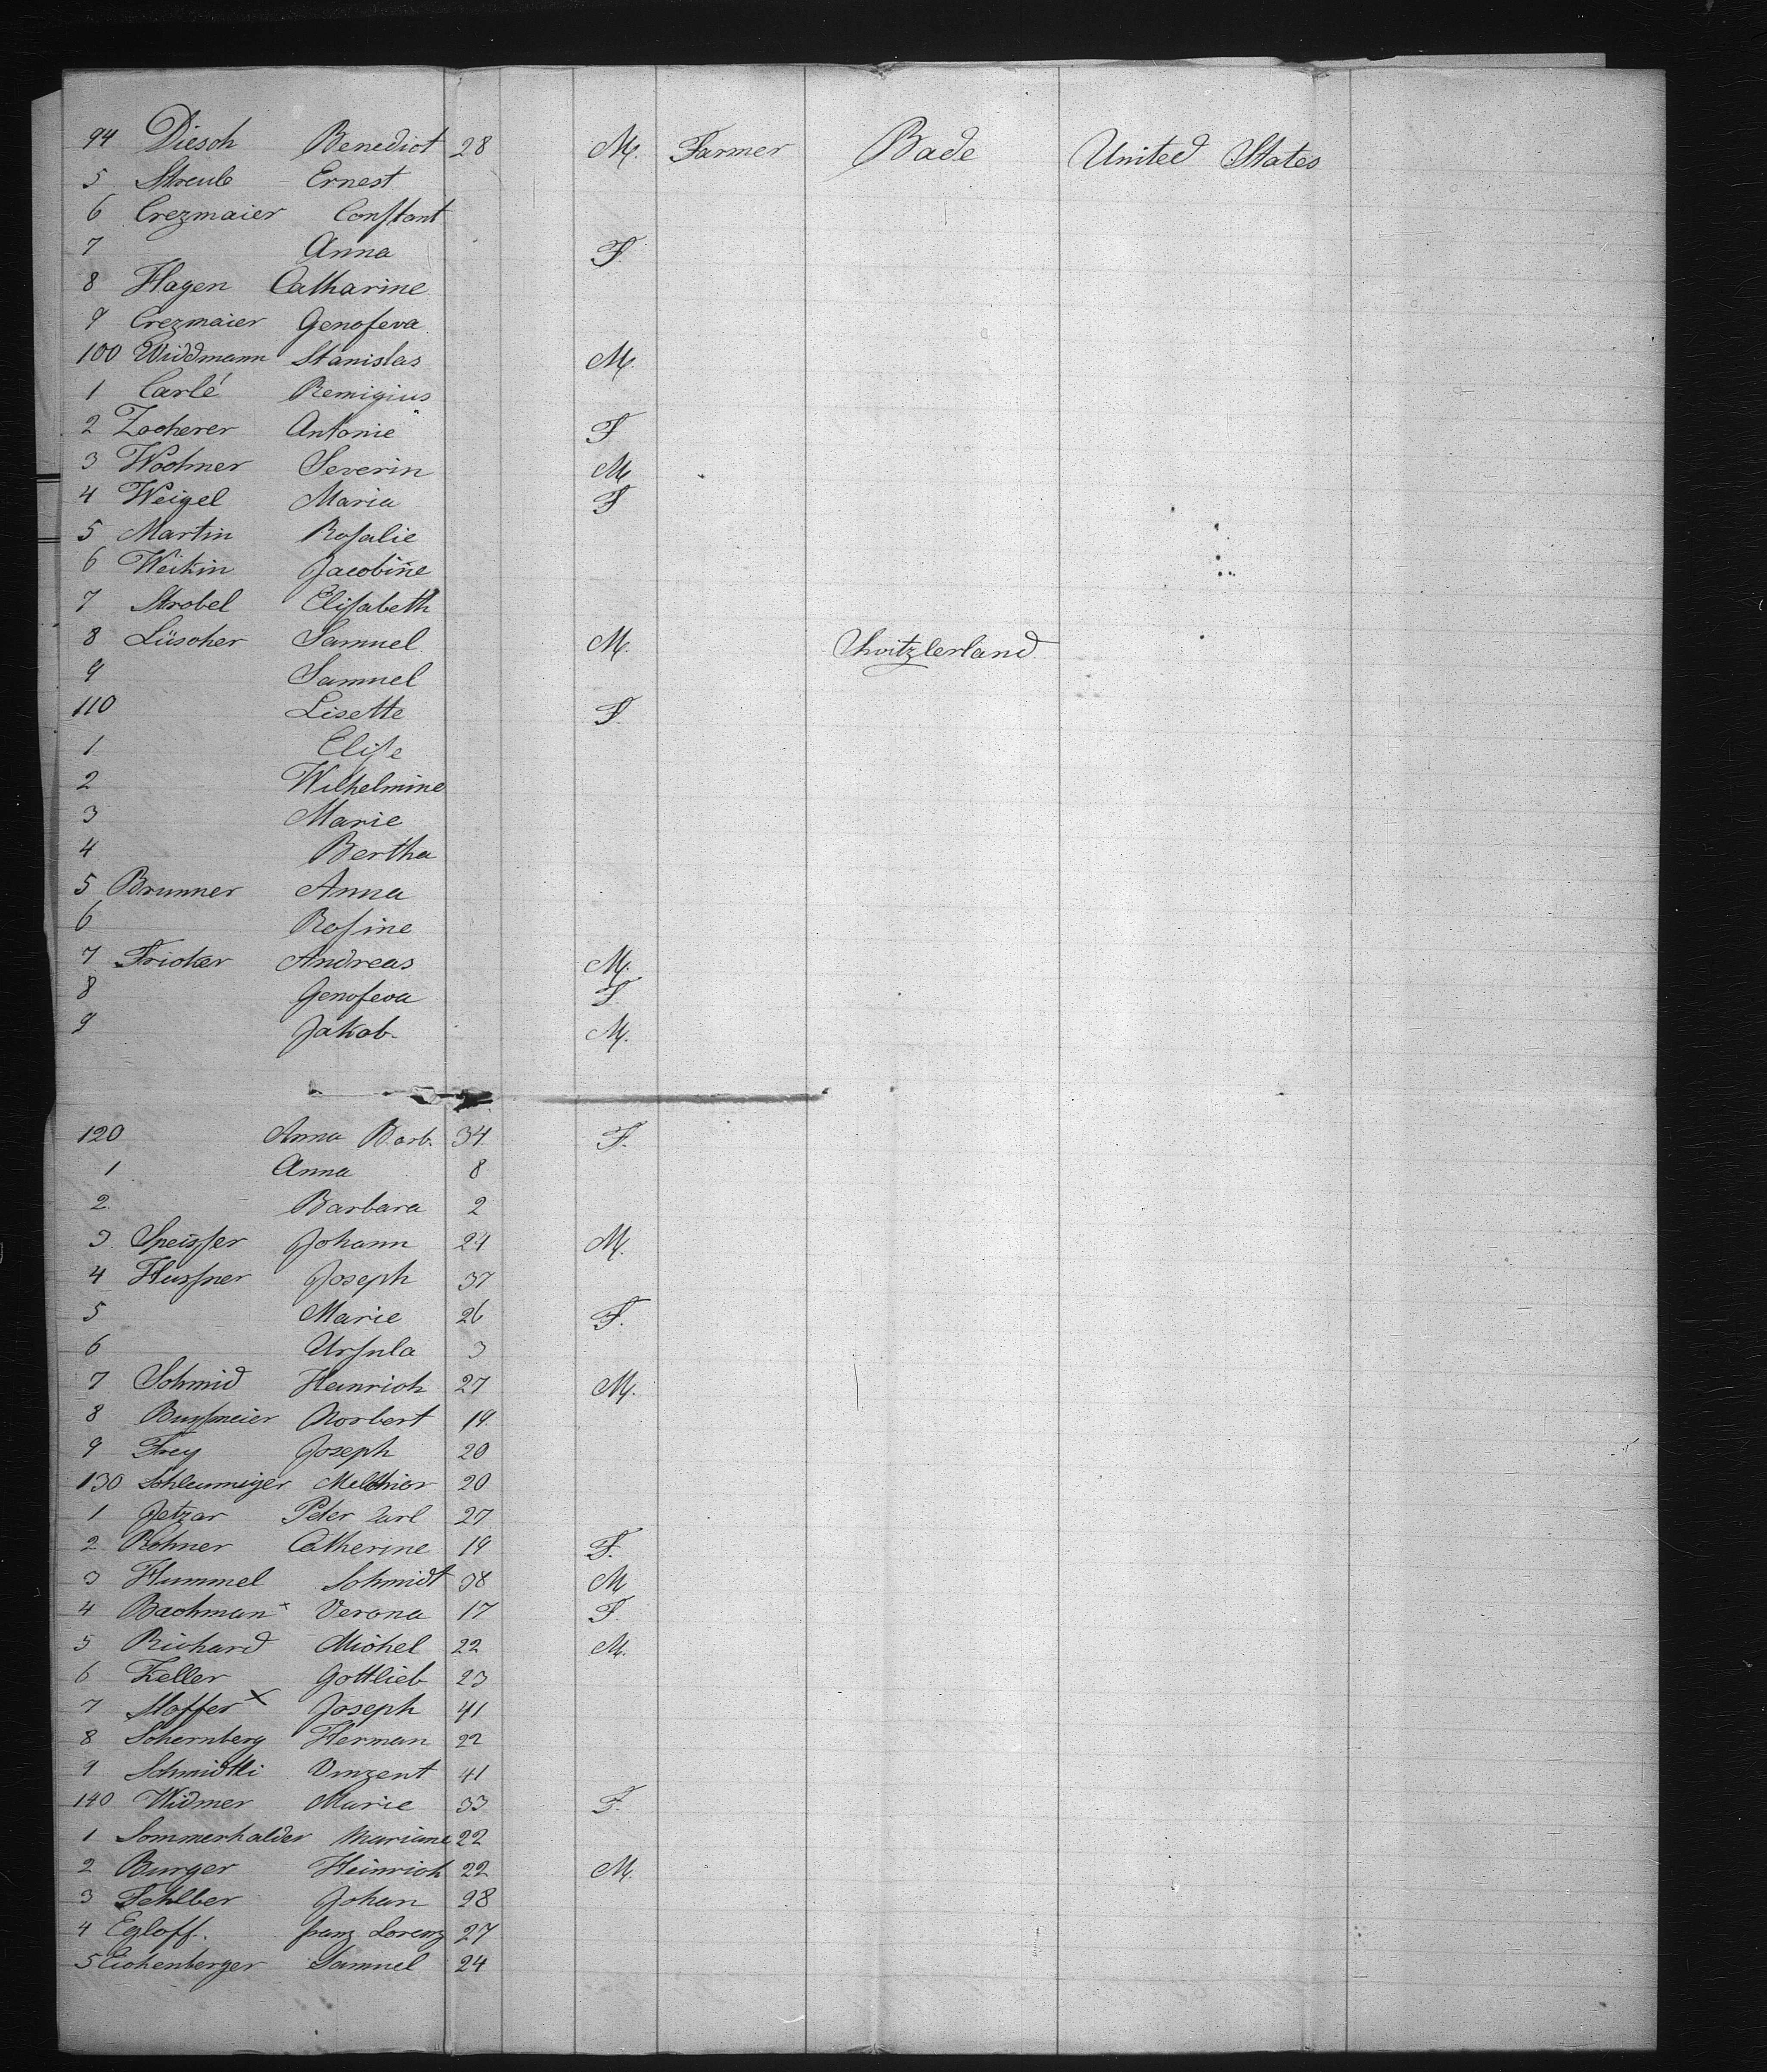 94 Diesch Benedict 28 M. Farmer Bade United States
5 Streule Ernest
6 Crezmaier Constant
7 Anna F.
8 Hagen Catharine
9 Crezmaier Genofeva
100 Widdmann Stanislas M.
1 Carlé Remigius
2 Zocherer Antonie F
3 Wochner Severin M
4 Weigel Maria F
5 Martin Rosalie
6 Weikin Jacobine
7 Strobel Elisabeth
8 Lüscher Samuel M. Switzlerland
9 Samuel
110 Lisette F.
1 Elise
2 Wilhelmine
3 Marie
4 Bertha
5 Brunner Anna
6 Rosine
7 Fricker Andreas M.
8 Genofeva F.
9 Jakob M.
120 Anna Barb. 34 F.
1 Anna 8
2 Barbara 2
3 Speisser Johann 24 M.
4 Joseph 37
5 Marie 26 F.
6 Ursula 3
7 Schmid Heinrich 27 M.
8 Bussmeier Norbert 19
9 Frey Joseph 20
130 Schleuniger Melchior 20
1 Jetzer Peter Carl 27
2 Rohner Catherine 19 F.
3 Hummel Schmidt 38 M
4 Bachman x Verona 17 F.
5 Richard Michel 22 M.
6 Keller Gottlieb 23
7 Stoffer x Joseph 41
8 Schernberg Herman 22
9 Schmidtli Vinzent 41
140 Widmer Marie 33 F.
1 Sommerhalder Mariane 22
2 Burger Heinrich 22 M.
3 Johan 28
4 Egloff. franz Lorenz 27
5 Eichenberger Samuel 24